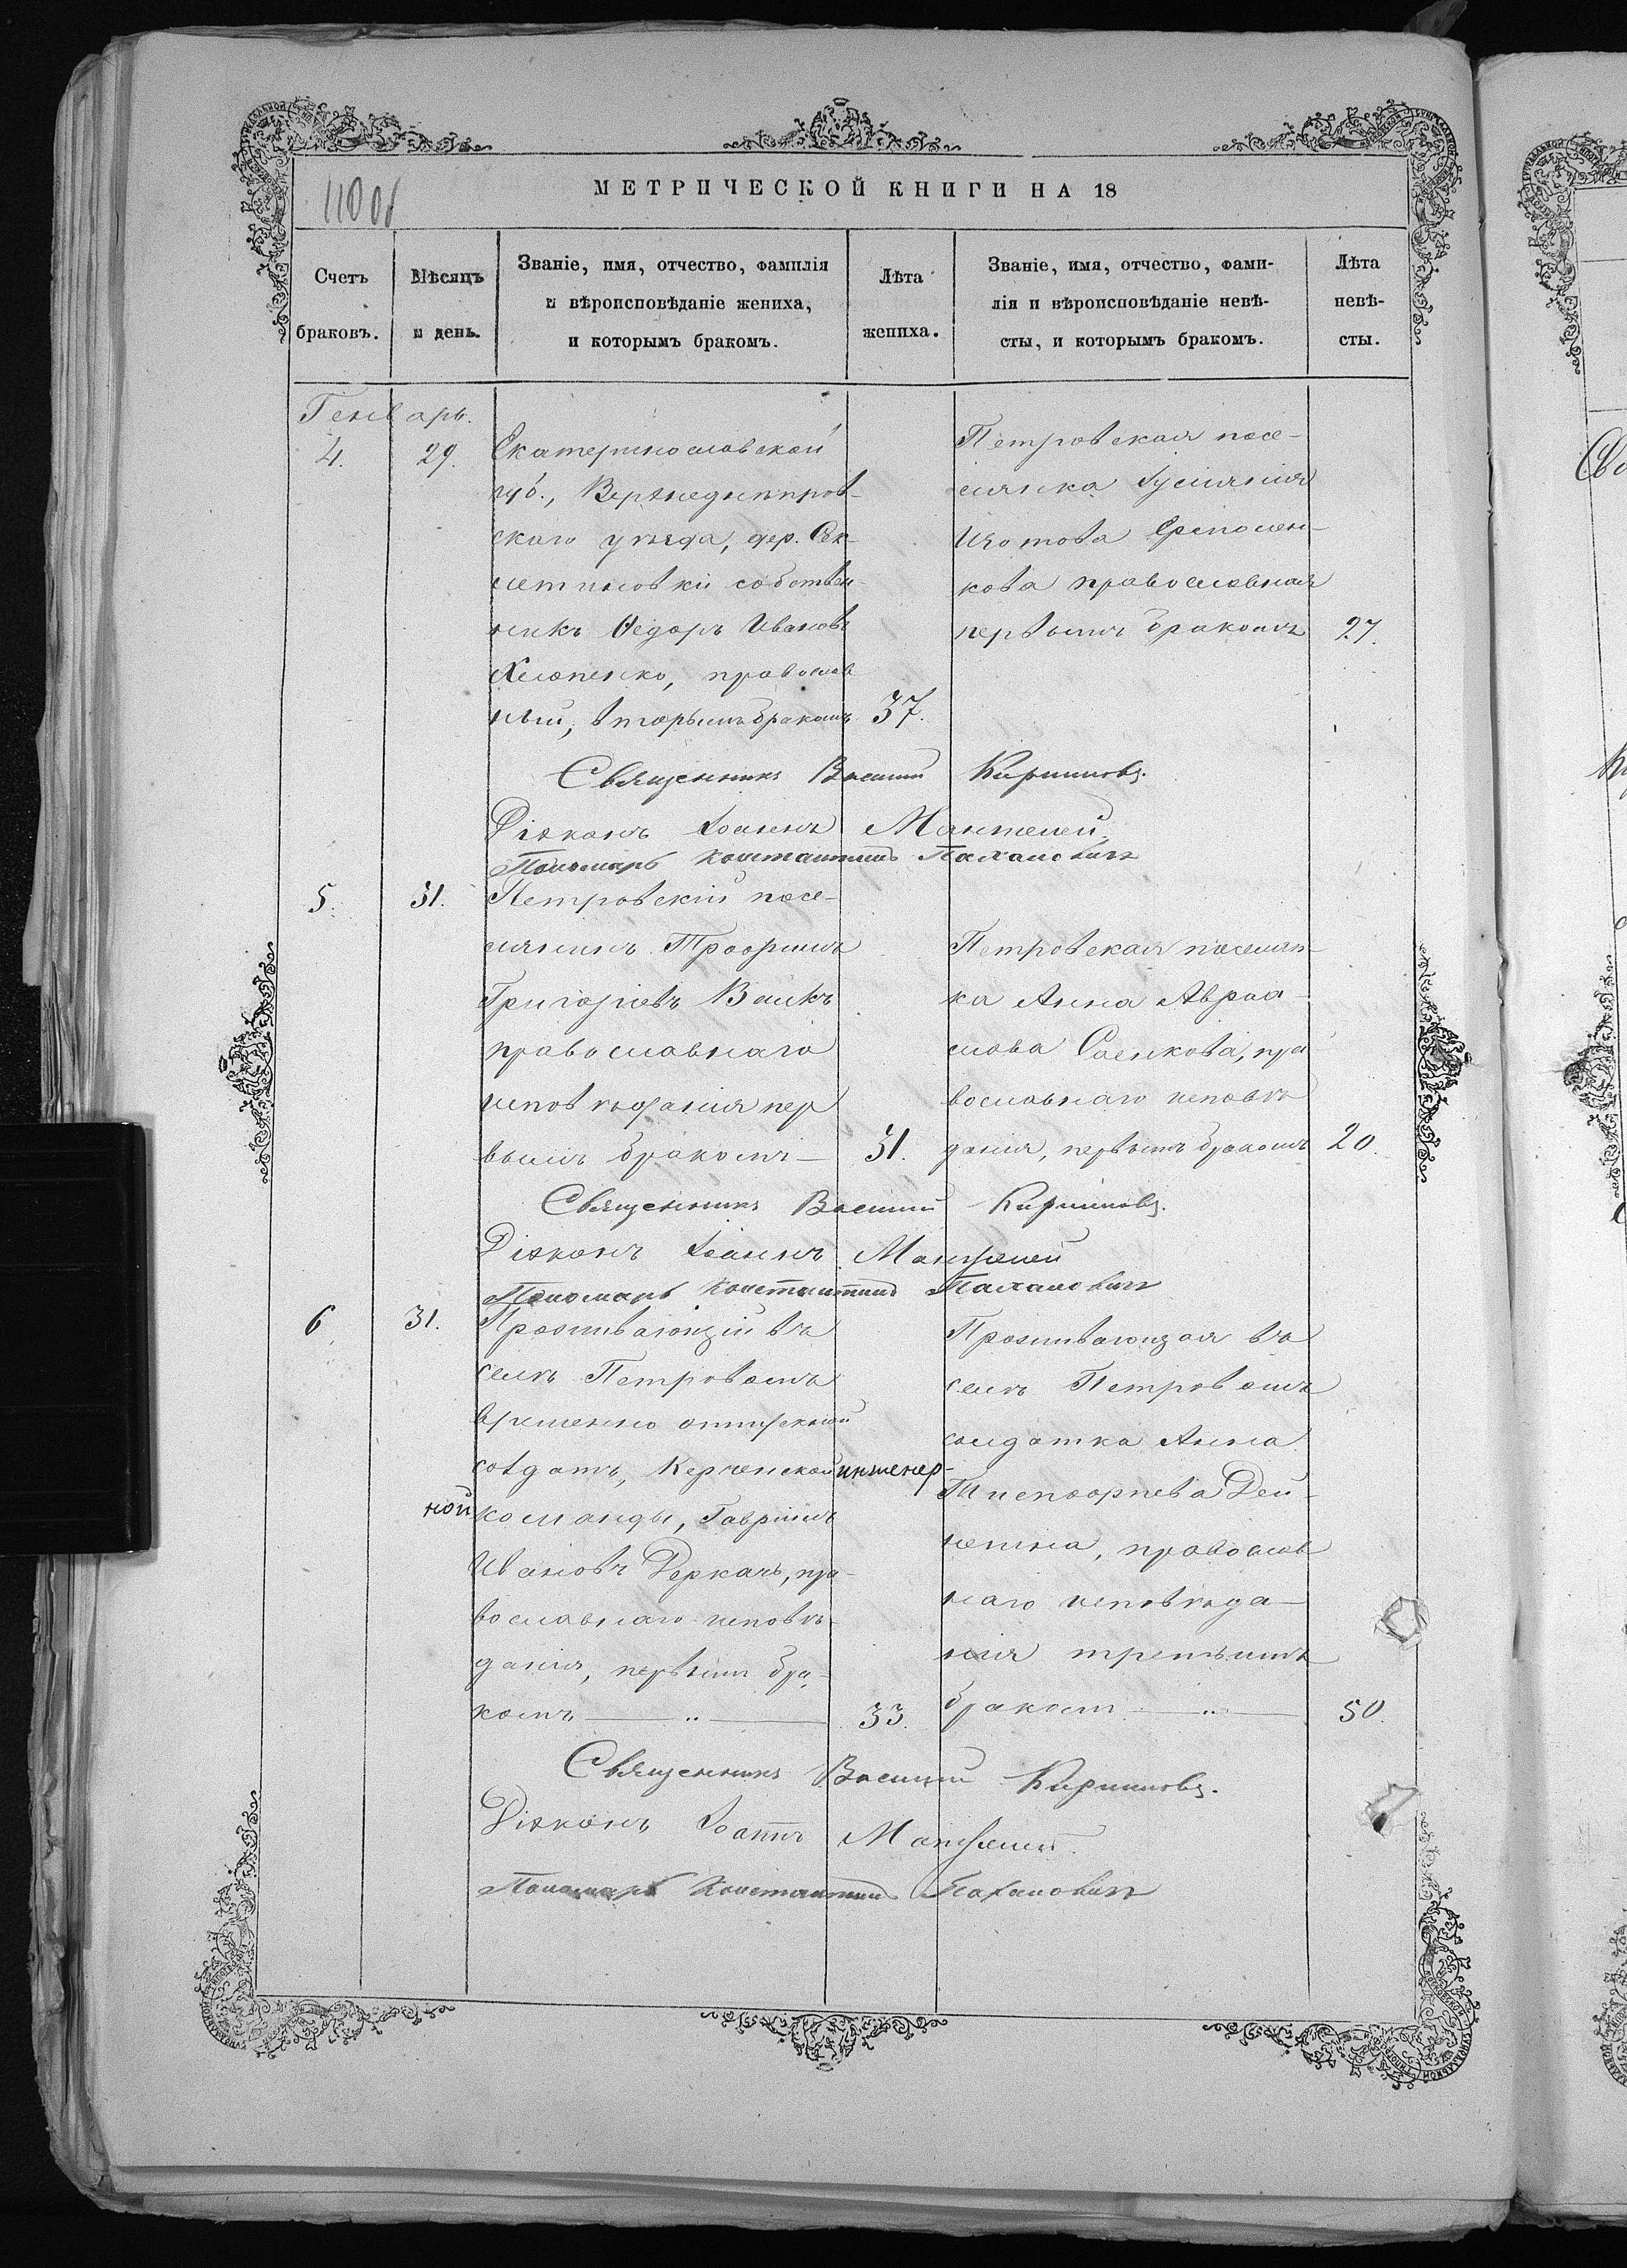 МЕТРИЧЕСКОЙ КНИГИ НА 18
Счетъ браковъ.
Мѣсяцъ и день.
Званіе, имя, отчество, фамилія
и вѣроисповѣданіе жениха,
и которымъ бракомъ.
Лѣта жениха.
Званіе, имя, отчество, фами-
лія и вѣроисповѣданіе невѣ-
сты, и которымъ бракомъ.
Лѣта невѣ-
сты.
Генварь.
4. 29.
Екатеринославской
губ., Верхнеднѣпров-
скаго уѣзда, дер.
собствен-
никъ Ѳедоръ Ивановъ
Хлопенко, православ
ный, вторымъ бракомъ 37.
Петровская посе-
лянка
Изотова
кова православная
первымъ бракомъ 27.
Священникъ Василій Кирилловъ.
Діяконъ Іоаннъ
Пономарь Константинъ
5. 31.
Петровскій посе-
лянинъ Трофимъ
Григорьевъ Баикъ
православнаго
исповѣданія пер
вымъ бракомъ 31.
Петровская поселян-
ка Анна Авраа-
мова Саенкова, пра
вославнаго исповѣ
данія, первымъ бракомъ 20.
Священникъ Василій Кирилловъ.
Діяконъ Іоаннъ
Пономарь Константинъ
6. 31.
Проживающій въ
селѣ Петровомъ
временно отпускной
солдатъ, Керченской инженер-
ной команды, Гавріилъ
Ивановъ Деркачъ, пра-
вославнаго исповѣ-
данія, первымъ бра-
комъ — „ — 33.
Проживающая въ
селѣ Петровомъ
солдатка Анна
Дей-
некина, православ
наго исповѣда-
нія третьимъ
бракомъ — „ — 50.
Священникъ Василій Кирилловъ.
Діяконъ Іоаннъ
Пономарь Константинъ